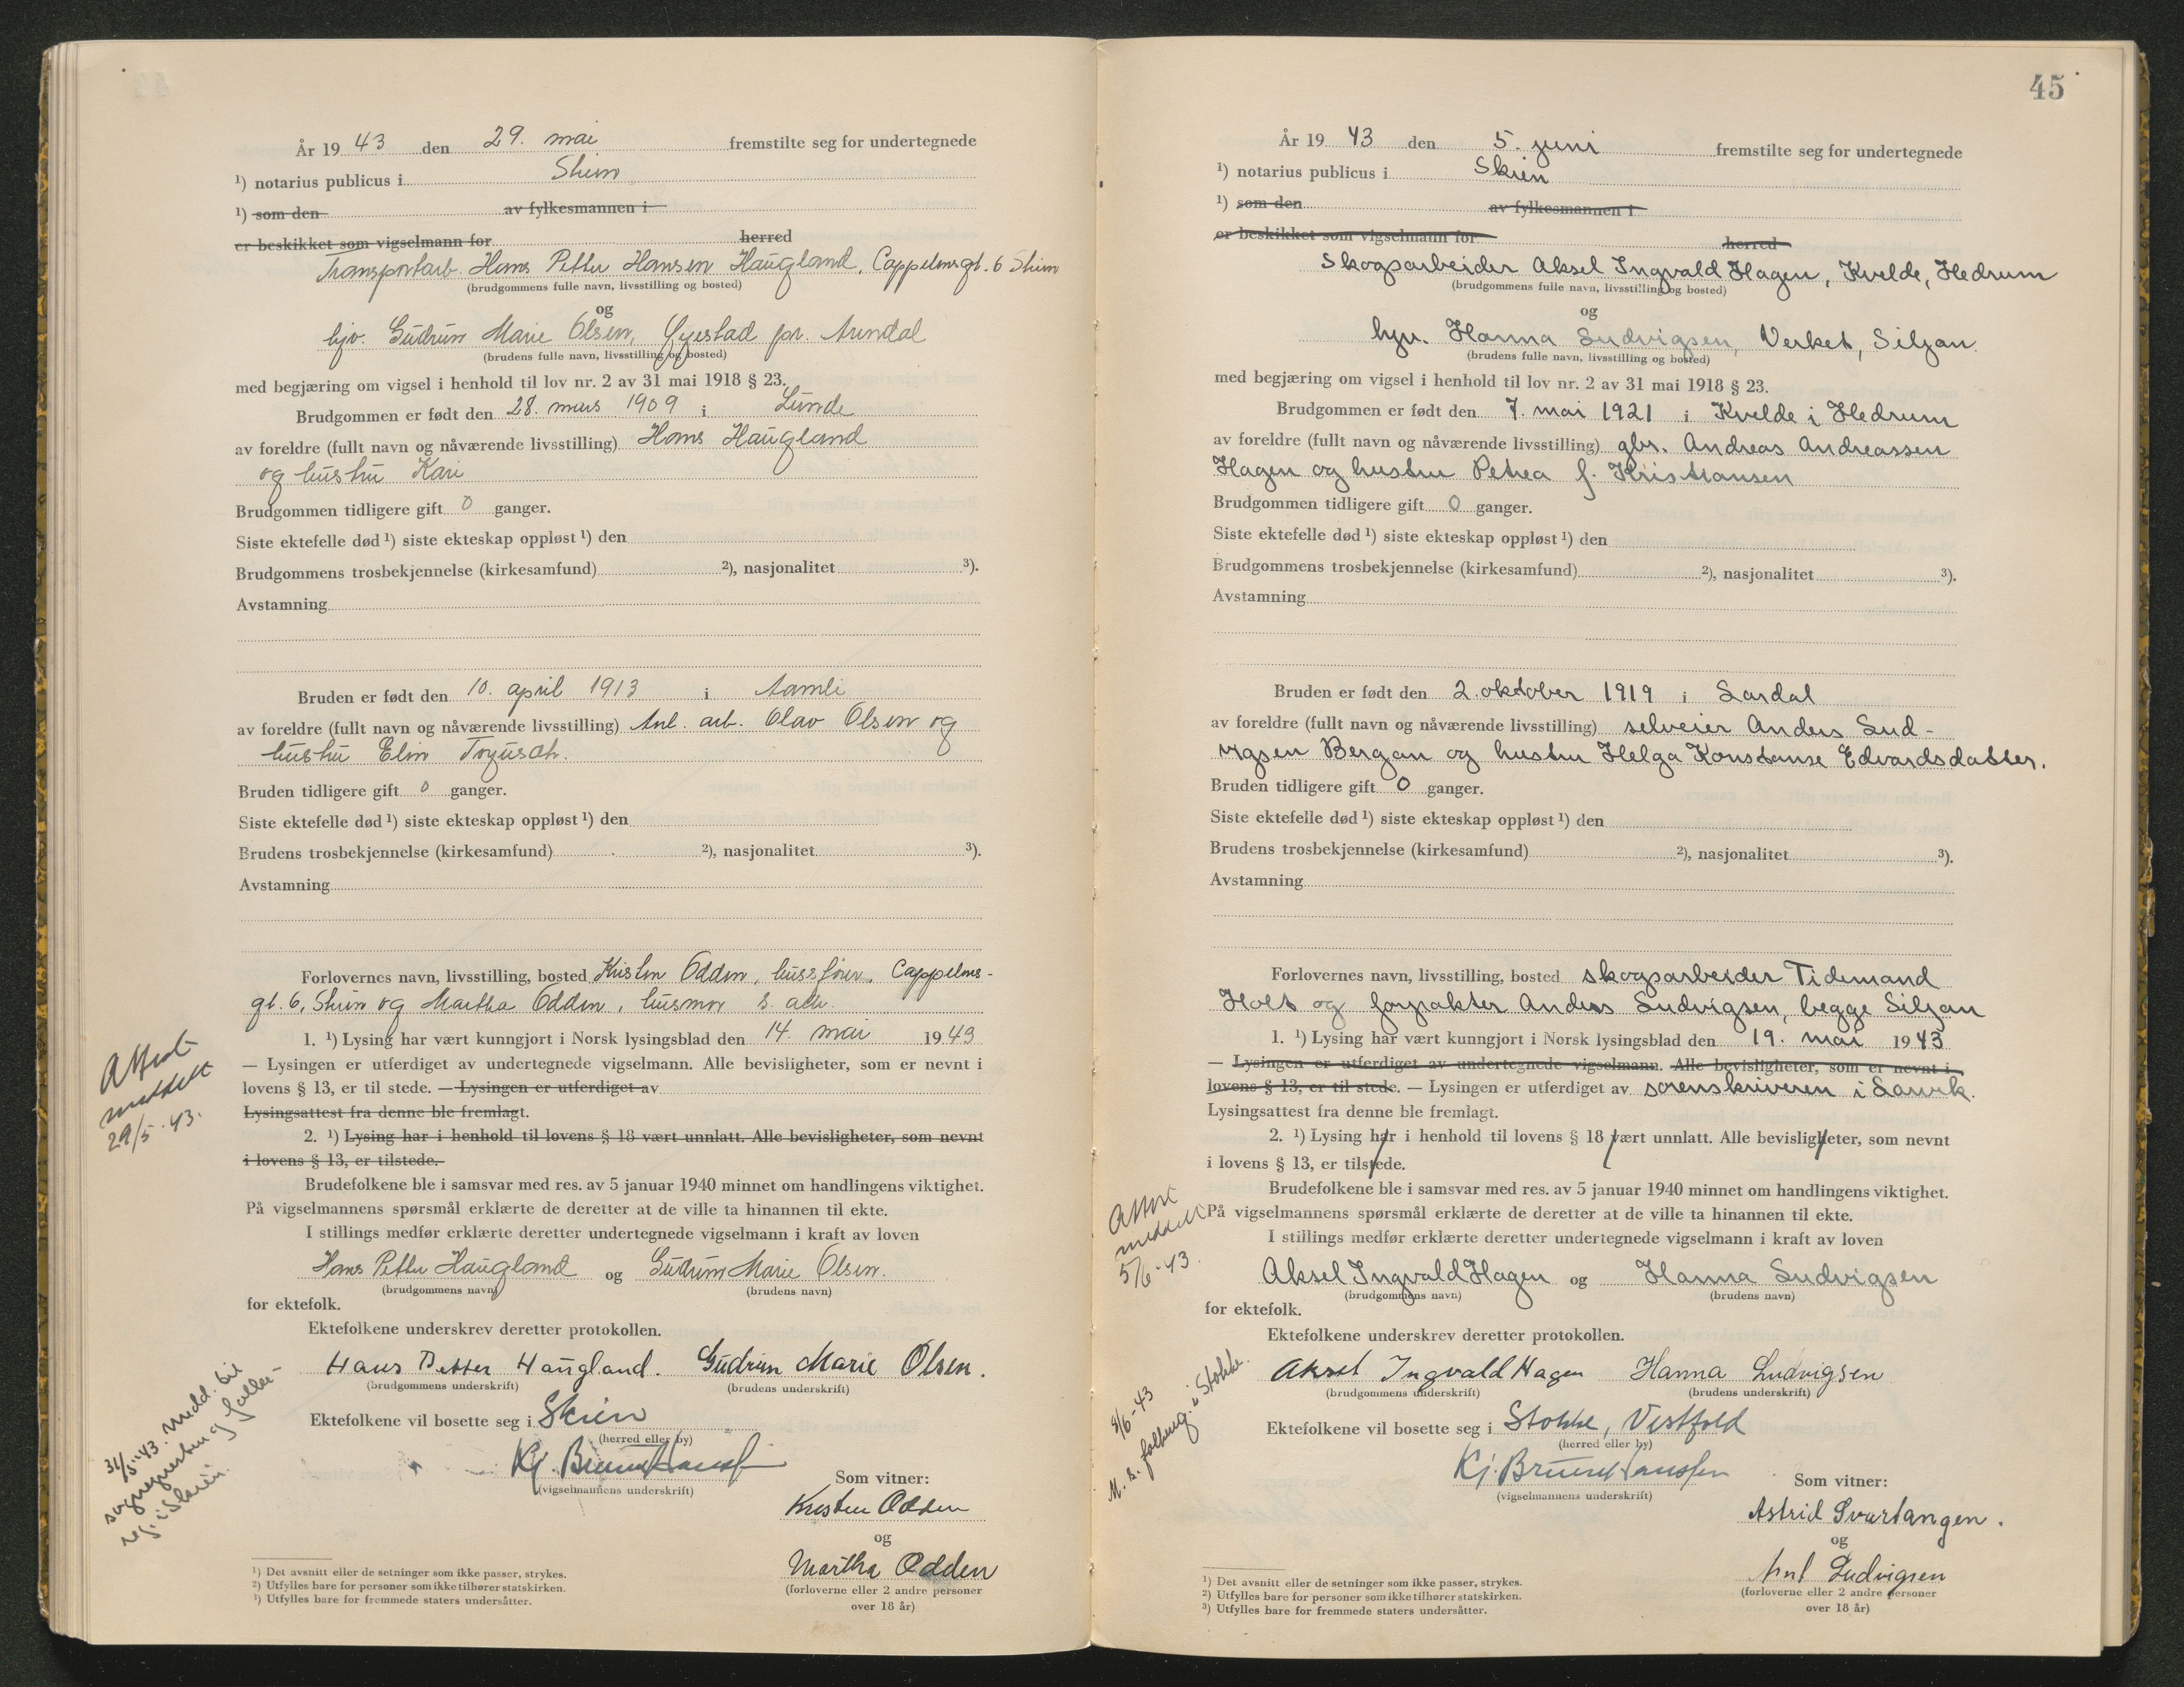 År 19 43 den 29. mai fremstilte seg for undertegnede
¹) notarius publicus i Skien
¹) som den av fylkesmannen i
er beskikket som vigselmann for herred
Transportarb. Hans Petter Hansen Haugland, Cappelensgt. 6 Skien
(brudgommens fulle navn, livsstilling og bosted)
og
hjv. Gudrun Marie Olsen, Øyestad pr. Arendal
(brudens fulle navn, livsstilling og bosted)
med begjæring om vigsel i henhold til lov nr. 2 av 31 mai 1918 § 23.
Brudgommen er født den 28. mars 1909 i Lunde
av foreldre (fullt navn og nåværende livsstilling) Hans Haugland
og hustru Kari
Brudgommen tidligere gift 0 ganger.
Siste ektefelle død ¹) siste ekteskap oppløst ¹) den
Brudgommens trosbekjennelse (kirkesamfund) ²), nasjonalitet ³).
Avstamning
Bruden er født den 10. april 1913 i Aamli
av foreldre (fullt navn og nåværende livsstilling) Anl. arb. Olav Olsen og
hustru Elin
Bruden tidligere gift 0 ganger.
Siste ektefelle død ¹) siste ekteskap oppløst ¹) den
Brudens trosbekjennelse (kirkesamfund) ²), nasjonalitet ³).
Avstamning
Forlovernes navn, livsstilling, bosted Kristen Odden, Cappelens-
gt. 6, Skien og Martha Odden, husmor s. adr.
1. ¹) Lysing har vært kunngjort i Norsk lysingsblad den 14. mai 1943
— Lysingen er utferdiget av undertegnede vigselmann. Alle bevisligheter, som er nevnt i
lovens § 13, er til stede. — Lysingen er utferdiget av
Lysingsattest fra denne ble fremlagt.
2. ¹) Lysing har i henhold til lovens § 18 vært unnlatt. Alle bevisligheter, som nevnt
i lovens § 13, er tilstede.
Brudefolkene ble i samsvar med res. av 5 januar 1940 minnet om handlingens viktighet.
På vigselmannens spørsmål erklærte de deretter at de ville ta hinannen til ekte.
I stillings medfør erklærte deretter undertegnede vigselmann i kraft av loven
Hans Petter Haugland og Gudrun Marie Olsen.
(brudgommens navn) (brudens navn)
for ektefolk.
Ektefolkene underskrev deretter protokollen.
Hans Petter Haugland. Gudrun Marie Olsen.
(brudgommens underskrift) (brudens underskrift)
Ektefolkene vil bosette seg i Skien
(herred eller by)
Kj. Bruun Hanssen
(vigselmannens underskrift)
Som vitner:
Kristen Odden
og
Martha Odden
(forloverne eller 2 andre personer
over 18 år)
¹) Det avsnitt eller de setninger som ikke passer, strykes.
²) Utfylles bare for personer som ikke tilhører statskirken.
³) Utfylles bare for fremmede staters undersåtter.
Attest
meddelt
29/5-43.
31/5-43. Medd. til
sogneprest og folke-
reg. i Skien.
45
År 19 43 den 5. juni fremstilte seg for undertegnede
¹) notarius publicus i Skien
¹) som den av fylkesmannen i
er beskikket som vigselmann for herred
Skogsarbeider Aksel Ingvald Hagen, Kvelde, Hedrum
(brudgommens fulle navn, livsstilling og bosted)
og
hjv. Hanna Ludvigsen, Verket, Siljan.
(brudens fulle navn, livsstilling og bosted)
med begjæring om vigsel i henhold til lov nr. 2 av 31 mai 1918 § 23.
Brudgommen er født den 7. mai 1921 i Kvelde i Hedrum
av foreldre (fullt navn og nåværende livsstilling) gbr. Andreas Andreassen
Hagen og hustru Petrea f. Kristiansen
Brudgommen tidligere gift 0 ganger.
Siste ektefelle død ¹) siste ekteskap oppløst ¹) den
Brudgommens trosbekjennelse (kirkesamfund) ²), nasjonalitet ³).
Avstamning
Bruden er født den 2. oktober 1919 i Lardal
av foreldre (fullt navn og nåværende livsstilling) selveier Anders Lud-
vigsen Bergan og hustru Helga Konstanse Edvardsdatter.
Bruden tidligere gift 0 ganger.
Siste ektefelle død ¹) siste ekteskap oppløst ¹) den
Brudens trosbekjennelse (kirkesamfund) ²), nasjonalitet ³).
Avstamning
Forlovernes navn, livsstilling, bosted skogsarbeider Tidemand
Holt og forpakter Anders Ludvigsen, begge Siljan
1. ¹) Lysing har vært kunngjort i Norsk lysingsblad den 19. mai 1943
— Lysingen er utferdiget av undertegnede vigselmann. Alle bevisligheter, som er nevnt i
lovens § 13, er til stede. — Lysingen er utferdiget av sorenskriveren i Larvik.
Lysingsattest fra denne ble fremlagt.
2. ¹) Lysing har i henhold til lovens § 18 vært unnlatt. Alle bevisligheter, som nevnt
i lovens § 13, er tilstede.
Brudefolkene ble i samsvar med res. av 5 januar 1940 minnet om handlingens viktighet.
På vigselmannens spørsmål erklærte de deretter at de ville ta hinannen til ekte.
I stillings medfør erklærte deretter undertegnede vigselmann i kraft av loven
Aksel Ingvald Hagen og Hanna Ludvigsen
(brudgommens navn) (brudens navn)
for ektefolk.
Ektefolkene underskrev deretter protokollen.
Aksel Ingvald Hagen Hanna Ludvigsen
(brudgommens underskrift) (brudens underskrift)
Ektefolkene vil bosette seg i Stokke, Vestfold
(herred eller by)
Kj. Bruun Hanssen
(vigselmannens underskrift)
Som vitner:
Astrid Svartangen.
og
Ludvigsen
(forloverne eller 2 andre personer
over 18 år)
¹) Det avsnitt eller de setninger som ikke passer, strykes.
²) Utfylles bare for personer som ikke tilhører statskirken.
³) Utfylles bare for fremmede staters undersåtter.
Attest
meddelt
5/6-43.
8/6-43
M. t. folkereg. i Stokke.